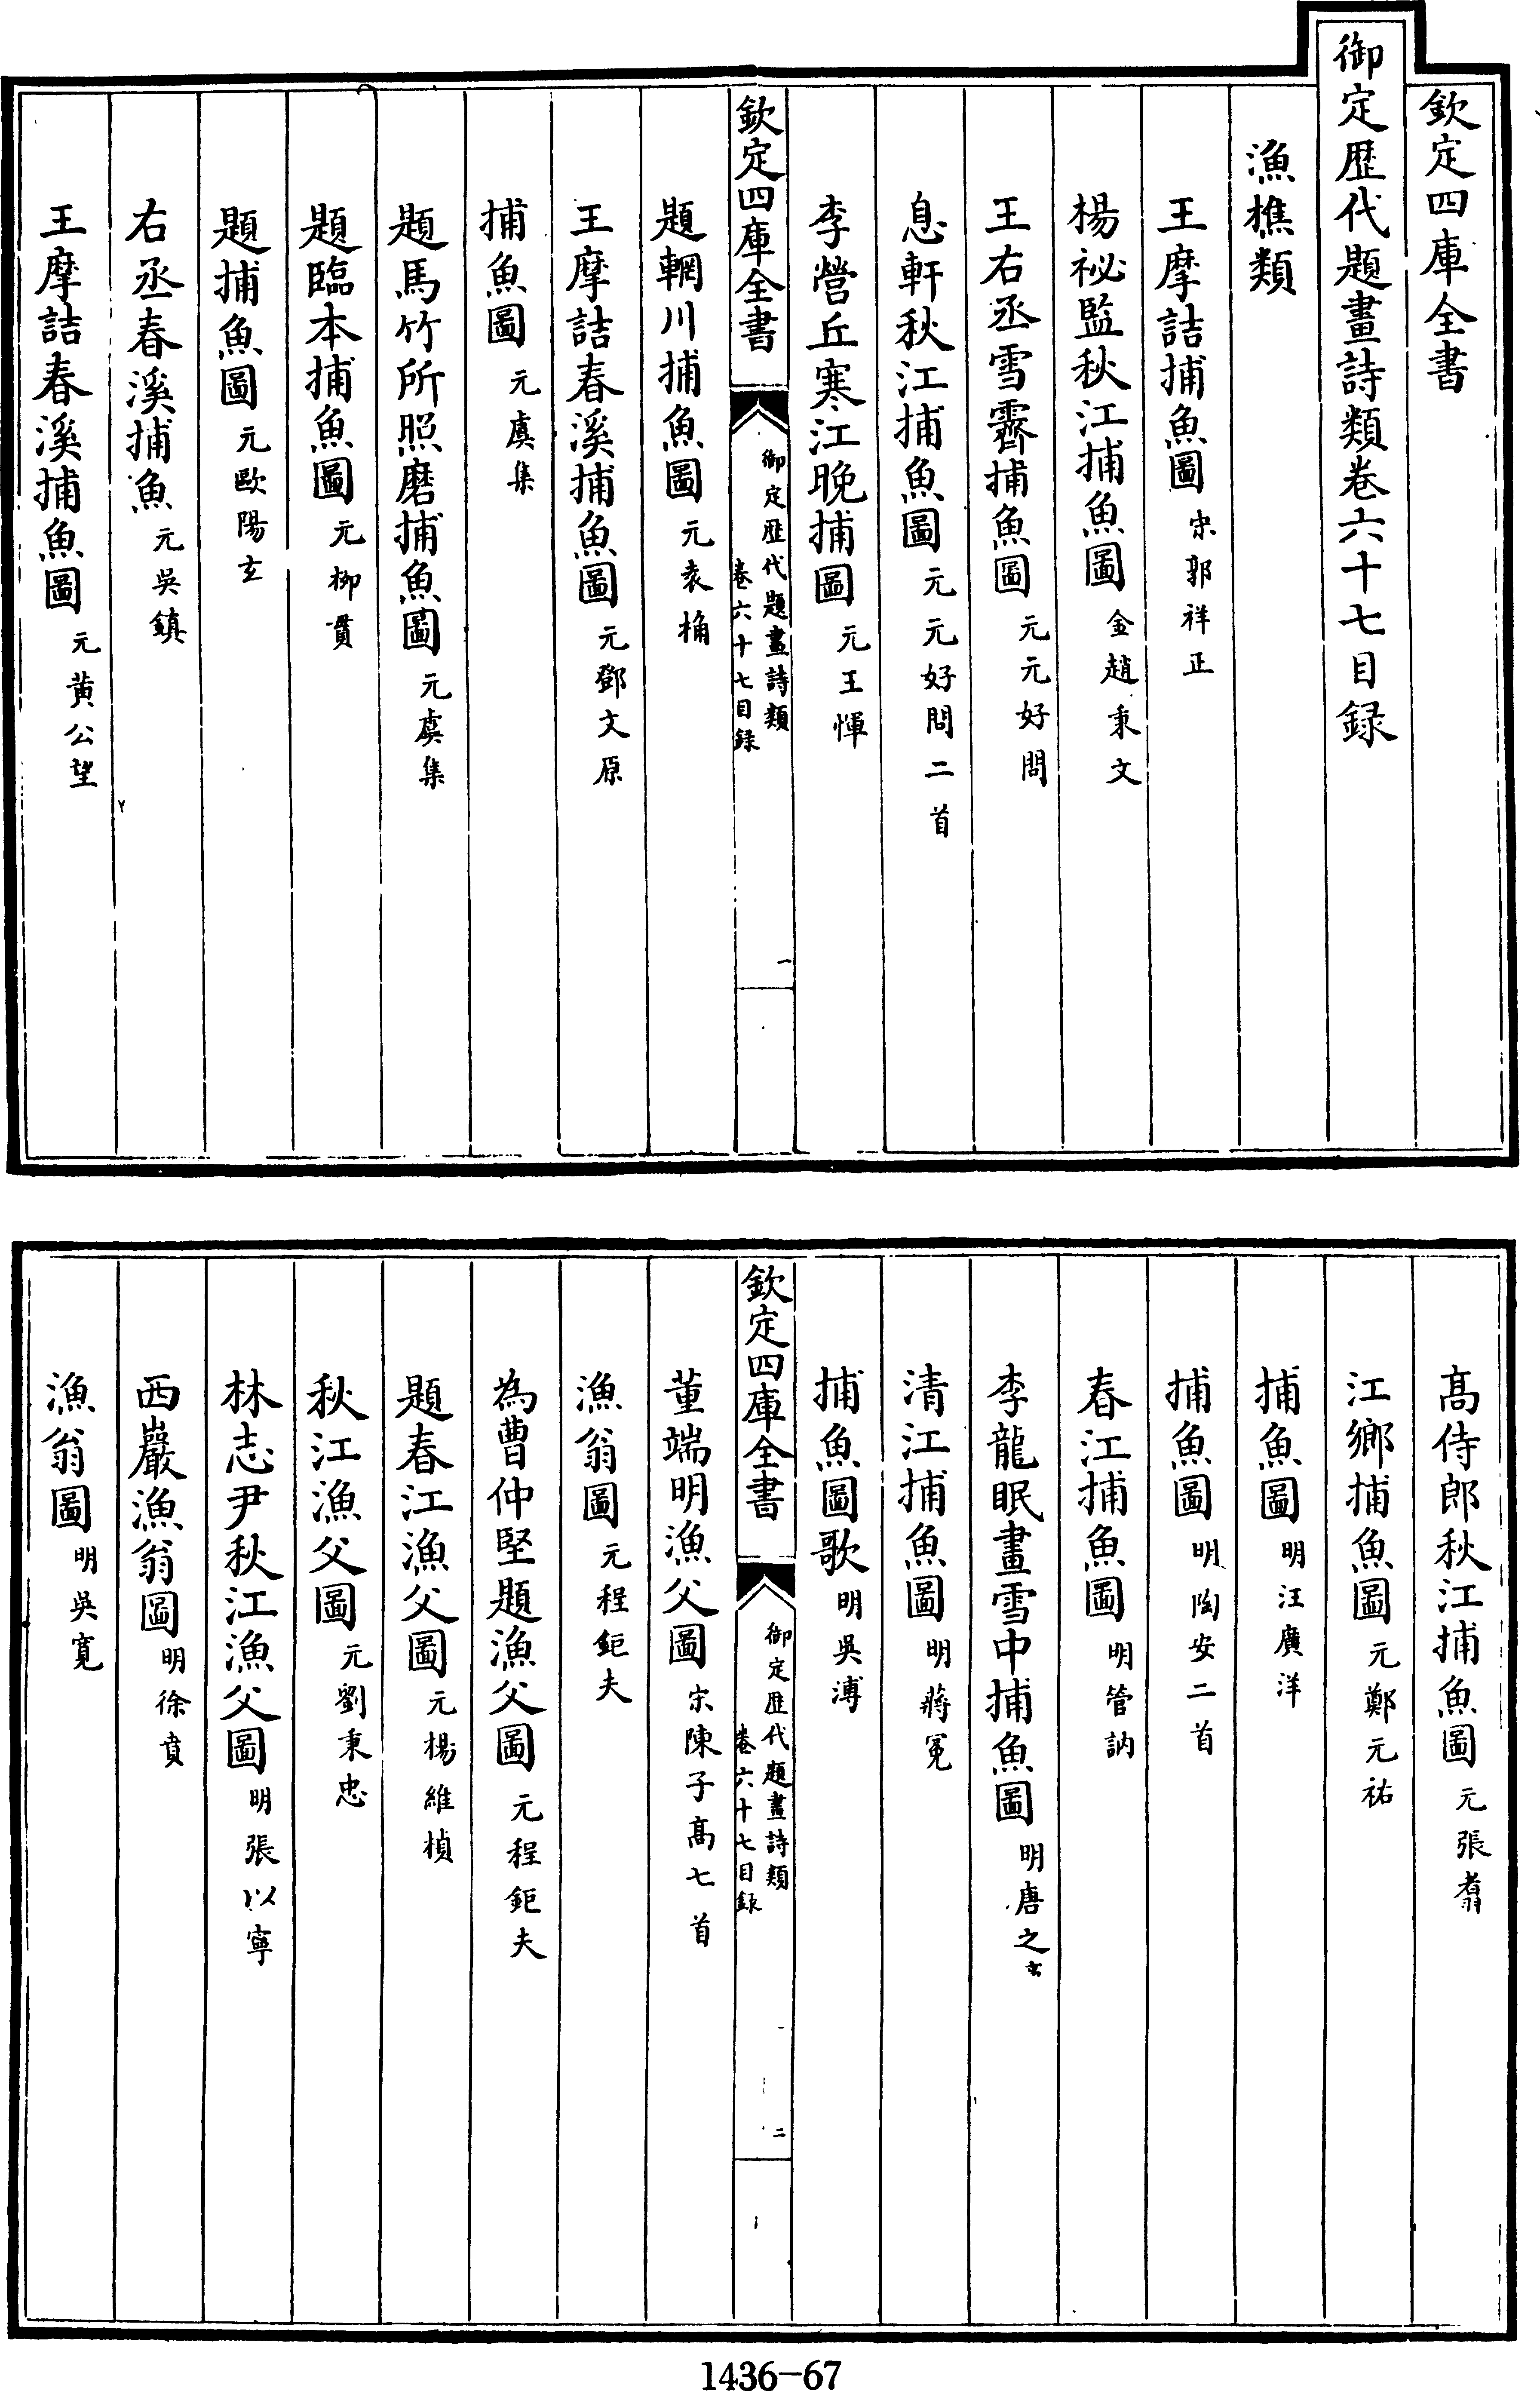 欽定四庫全書
御定歴代題畫詩類卷六十七目録
漁樵類
王摩詰捕魚圖 宋郭祥正
楊祕監秋江捕魚圖 金趙秉文
王右丞雪霽捕魚圖 元元好問
息軒秋江捕魚圖 元元好問二首
李營丘寒江晚捕圖 元王惲
欽定四庫全書
御定歴代題畫詩類
卷六十七目録
一
題輞川捕魚圖 元袁桷
王摩詰春溪捕魚圖 元鄧文原
捕魚圖 元虞集
題馬竹所照磨捕魚圖 元虞集
題臨本捕魚圖 元柳貫
題捕魚圖 元歐陽玄
右丞春溪捕魚 元吳鎮
王摩詰春溪捕魚圖 元黄公望
髙侍郎秋江捕魚圖 元張翥
江鄉捕魚圖 元鄭元祐
捕魚圖 明汪廣洋
捕魚圖 明陶安二首
春江捕魚圖 明管訥
李龍眠畫雪中捕魚圖 明唐之
清江捕魚圖 明蔣冕
捕魚圖歌 明吳溥
欽定四庫全書
御定歴代題畫詩類
卷六十七目録
二
董端明漁父圖 宋陳子髙七首
漁翁圖 元程鉅夫
為曹仲堅題漁父圖 元程鉅夫
題春江漁父圖 元楊維楨
秋江漁父圖 元劉秉忠
林志尹秋江漁父圖 明張以寧
西巖漁翁圖 明徐賁
漁翁圖 明吳寛
1436-67